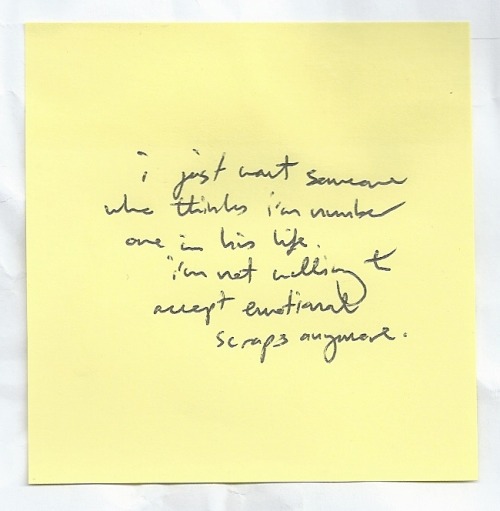 i just want someone
who thinks i'm number
one in his life.
i'm not willing to
accept emotional
scraps anymore.